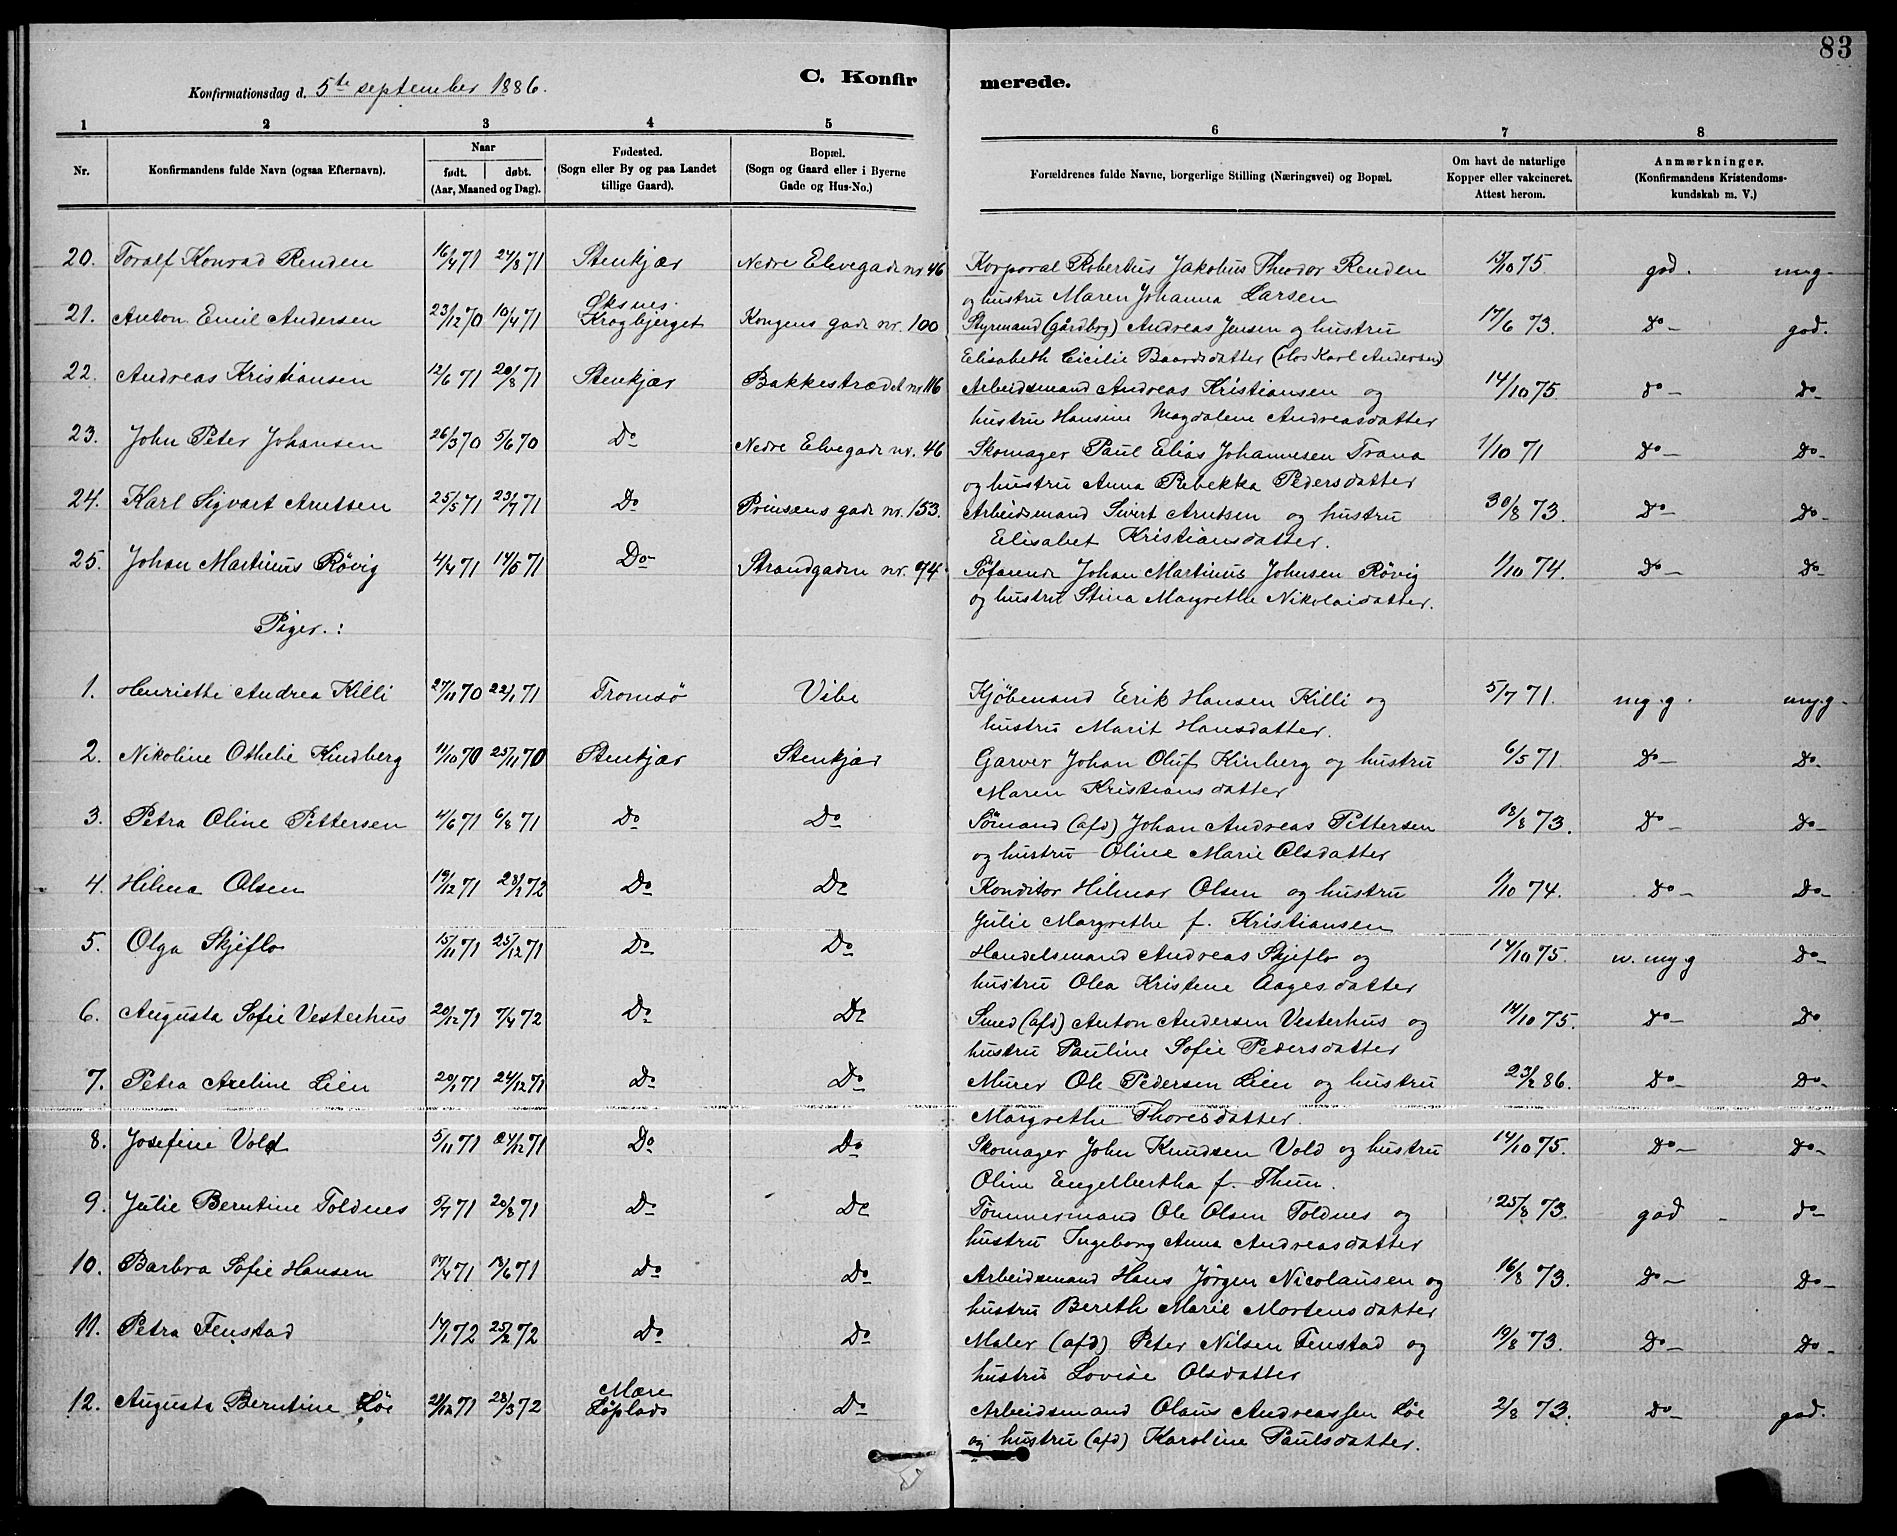 83
Konfirmationsdag d. 5te september 1886.
C. Konfirmerede.
1 2 3 4 5 6 7 8
Nr. Konfirmandens fulde Navn (ogsaa Efternavn). Naar født. døbt. (Aar, Maaned og Dag). Fødested. (Sogn eller By og paa Landet tillige Gaard). Bopæl. (Sogn og Gaard eller i Byerne Gade og Hus-No.) Forældrenes fulde Navne, borgerlige Stilling (Næringsvei) og Bopæl. Om havt de naturlige Kopper eller vakcineret. Attest herom. Anmærkninger. (Konfirmandens Kristendomskundskab m. V.)
20. Toralf Konrad Renden 16/4 71 27/8 71 Stenkjær Nedre Elvegade nr. 46 Korporal Robertus Jakobus Theodor Renden 15/10 75. god. mg.
og hustru Maren Johanna Larsen
21. Anton Emil Andersen 23/12 70 10/4 71 Øksnes. Krogbjerget Kongens gade nr. 100 Styrmand (gårdbrg) Andreas Jensen og hustru 17/6 73. Do god.
Elisabeth Cicilie Baardsdatter (hos Karl Andersen)
22. Andreas Kristiansen 12/6 71 20/8 71 Stenkjær Bakkestrædet nr 116 Arbeidsmand Andreas Kristiansen og 14/10 75. do Do
hustru Hansine Magdalene Andreasdatter
23. John Peter Johansen 26/3 70 5/6 70 Do Nedre Elvegade nr. 46 Skomager Paul Elias Johannesen Trana 1/10 71 Do Do
og hustru Anna Rebekka Pedersdatter
24. Karl Sigvart Arntsen 25/5 71 23/7 71 Do Prinsens gade nr. 153. Arbeidsmand Sivert Arntsen og hustru 30/8 73. Do Do
Elisabet Kristiansdatter.
25. Johan Martinus Røvig 4/4 71 14/5 71 Do Strandgaden nr. 94. Søfarende Johan Martinus Johnsen Røvig 1/10 74. Do Do
og hustru Stina Margrethe Nikolaidatter.
Piger.:
1. Henriette Andrea Killi 27/11 70 22/1 71 Tromsø Vibe Kjøbmand Erik Hansen Killi og 5/7 71. mg.g. mg.g.
hustru Marit Hansdatter.
2. Nikoline Othelie Kindberg 11/10 70 25/11 70 Stenkjær Stenkjær Garver Johan Oluf Kinberg og hustru 6/5 71. Do Do
Maren Kristiansdatter
3. Petra Oline Pettersen 4/6 71 6/8 71 Do Do Sømand (afd) Johan Andreas Pettersen 18/8 73. Do Do
og hustru Oline Marie Olsdatter
4. Hilma Olsen 19/12 71 28/1 72 Do Do Konditor Hilmar Olsen og hustru 1/10 74. Do Do
Julie Margrethe f. Kristiansen
5. Olga Skjeflo 15/11 71 25/12 71 Do Do Handelsmand Andreas Skjeflo og 14/10 75. n. my g Do
hustru Olea Kristene Aagesdatter
6. Augusta Sofie Vesterhus 20/12 71 7/4 72 Do Do Smed (afd) Anton Andersen Vesterhus og 14/10 75. Do Do
hustru Pauline Sofie Pedersdatter
7. Petra Axeline Lien 20/1 71 24/12 71 Do Do Murer Ole Pedersen Lien og hustru 23/2 86. Do Do
Margrethe Thoresdatter.
8. Josefine Vold 5/11 71 24/12 71 Do Do Skomager John Knudsen Vold og hustru 14/10 75. Do Do
Oline Engelbertha f. Thun.
9. Julie Berntine Toldnes 5/7 71 20/8 71 Do Do Tømmermand Ole Olsen Toldnes og 25/8 73. god do
hustru Ingeborg Anna Andreasdatter
10. Barbra Sofie Hansen 17/4 71 18/6 71 Do Do Arbeidsmand Hans Jørgen Nicolausen og 16/8 73. Do Do
hustru Bereth Marie Mortensdatter
11. Petra Fenstad 14/1 72 25/2 72 Do Do Maler (afd) Peter Nilsen Fenstad og 19/8 73. Do Do
hustru Lovise Olsdatter
12. Augusta Berntine Løe 28/12 71 28/3 72 Mære Løplads Do Arbeidsmand Olaus Andreassen Løe 2/8 73. Do god.
og hustru (afd) Karoline Paulsdatter.